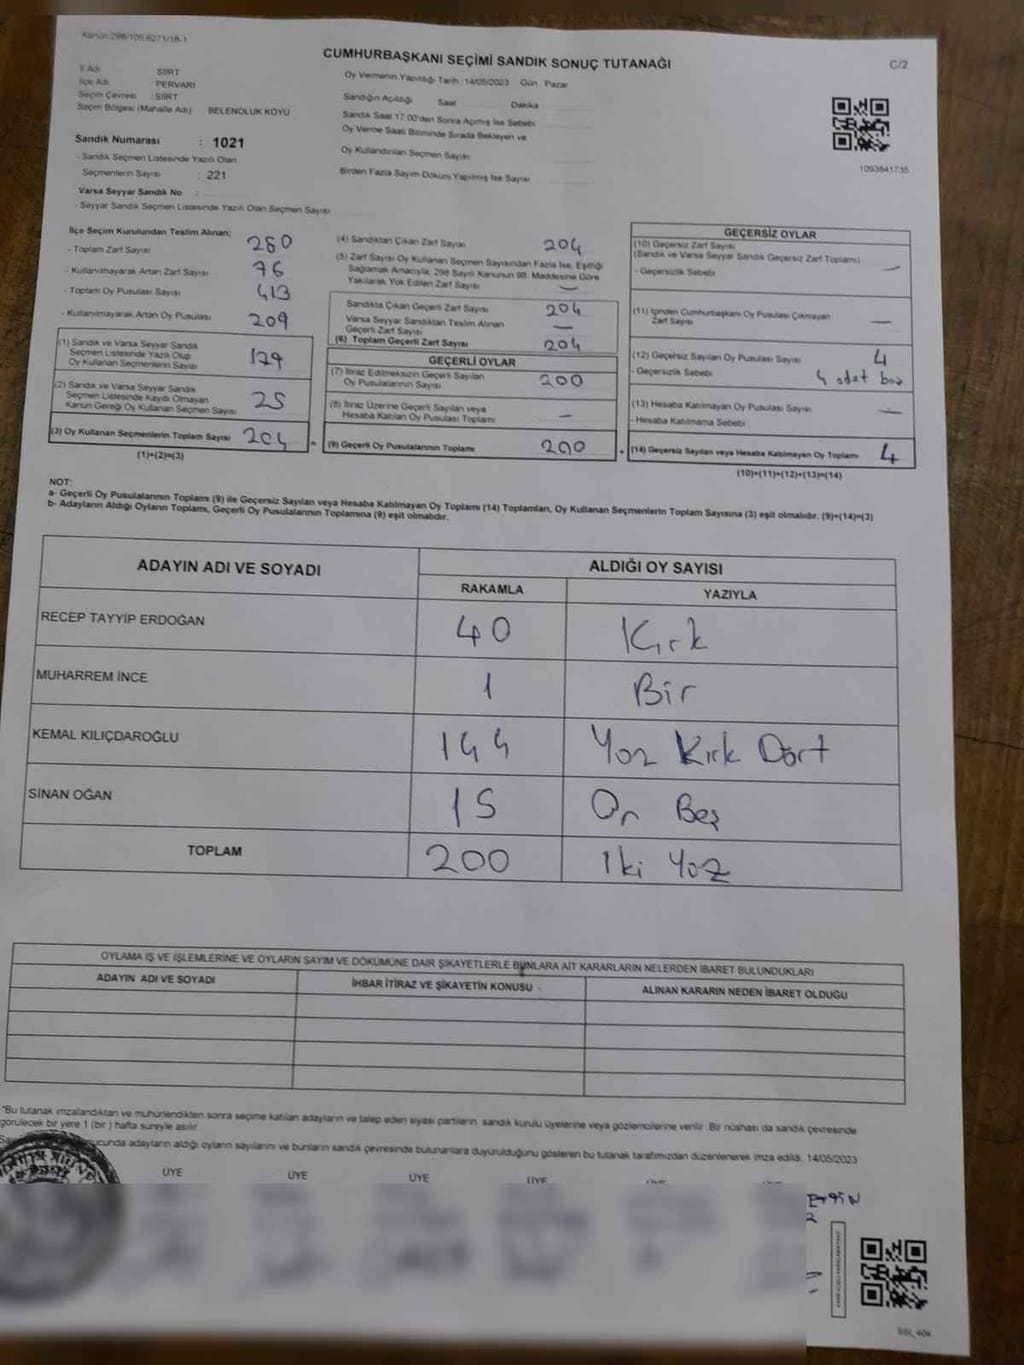 Kanun 298/105,6271/18-1
CUMHURBAŞKANI SEÇİMİ SANDIK SONUÇ TUTANAĞI
C/2
İl Adı SİİRT
İlçe Adı PERVARİ
Seçim Çevresi : SİİRT
Seçim Bölgesi (Mahalle Adı) BELENOLUK KÖYÜ
Oy Vermenin Yapıldığı Tarih :14/05/2023 Gün Pazar
Sandığın Açıldığı Saat Dakika
Sandık Saat 17:00'den Sonra Açılmış İse Sebebi
Oy Verme Saati Bitiminde Sırada Bekleyen ve
Oy Kullandırılan Seçmen Sayısı
Birden Fazla Sayım Döküm Yapılmış İse Sayısı
1093641735
Sandık Numarası : 1021
- Sandık Seçmen Listesinde Yazılı Olan
Seçmenlerin Sayısı : 221
Varsa Seyyar Sandık No :
- Seyyar Sandık Seçmen Listesinde Yazılı Olan Seçmen Sayısı
İlçe Seçim Kurulundan Teslim Alınan;
- Toplam Zarf Sayısı 280
- Kullanılmayarak Artan Zarf Sayısı 76
- Toplam Oy Pusulası Sayısı 413
- Kullanılmayarak Artan Oy Pusulası 209
(1) Sandık ve Varsa Seyyar Sandık
Seçmen Listesinde Yazılı Olup
Oy Kullanan Seçmenlerin Sayısı 179
(2) Sandık ve Varsa Seyyar Sandık
Seçmen Listesinde Kaydı Olmayan
Kanun Gereği Oy Kullanan Seçmen Sayısı 25
(3) Oy Kullanan Seçmenlerin Toplam Sayısı 204
(1)+(2)=(3)
(4) Sandıktan Çıkan Zarf Sayısı 204
(5) Zarf Sayısı Oy Kullanan Seçmen Sayısından Fazla İse, Eşitliği
Sağlamak Amacıyla; 298 Sayılı Kanunun 98. Maddesine Göre
Yakılarak Yok Edilen Zarf Sayısı —
Sandıkta Çıkan Geçerli Zarf Sayısı 204
Varsa Seyyar Sandıktan Teslim Alınan
Geçerli Zarf Sayısı —
(6) Toplam Geçerli Zarf Sayısı 204
GEÇERLİ OYLAR
(7) İtiraz Edilmeksizin Geçerli Sayılan
Oy Pusulalarının Sayısı 200
(8) İtiraz Üzerine Geçerli Sayılan veya
Hesaba Katılan Oy Pusulası Toplamı —
= (9) Geçerli Oy Pusulalarının Toplamı 200
GEÇERSİZ OYLAR
(10) Geçersiz Zarf Sayısı
(Sandık ve Varsa Seyyar Sandık Geçersiz Zarf Toplamı)
- Geçersizlik Sebebi —
(11) İçinden Cumhurbaşkanı Oy Pusulası Çıkmayan
Zarf Sayısı —
(12) Geçersiz Sayılan Oy Pusulası Sayısı 4
- Geçersizlik Sebebi 4 adet boş
(13) Hesaba Katılmayan Oy Pusulası Sayısı —
- Hesaba Katılmama Sebebi
+ (14) Geçersiz Sayılan veya Hesaba Katılmayan Oy Toplamı 4
(10)+(11)+(12)+(13)=(14)
NOT:
a- Geçerli Oy Pusulalarının Toplamı (9) ile Geçersiz Sayılan veya Hesaba Katılmayan Oy Toplamı (14) Toplamları, Oy Kullanan Seçmenlerin Toplam Sayısına (3) eşit olmalıdır. (9)+(14)=(3)
b- Adayların Aldığı Oyların Toplamı, Geçerli Oy Pusulalarının Toplamına (9) eşit olmalıdır.
ADAYIN ADI VE SOYADI
ALDIĞI OY SAYISI
RAKAMLA YAZIYLA
RECEP TAYYİP ERDOĞAN 40 Kırk
MUHARREM İNCE 1 Bir
KEMAL KILIÇDAROĞLU 144 Yüz Kırk Dört
SİNAN OĞAN 15 On Beş
TOPLAM 200 İki Yüz
OYLAMA İŞ VE İŞLEMLERİNE VE OYLARIN SAYIM VE DÖKÜMÜNE DAİR ŞİKAYETLERLE BUNLARA AİT KARARLARIN NELERDEN İBARET BULUNDUKLARI
ADAYIN ADI VE SOYADI
İHBAR İTİRAZ VE ŞİKAYETİN KONUSU
ALINAN KARARIN NEDEN İBARET OLDUĞU
"Bu tutanak imzalandıktan ve mühürlendikten sonra seçime katılan adayların ve talep eden siyasi partilerin sandık kurulu üyelerine veya gözlemcilerine verilir. Bir nüshası da sandık çevresinde
görülecek bir yere 1 (bir) hafta süreyle asılır
ucunda adayların aldığı oyların sayılarını ve bunların sandık çevresinde bulunanlara duyurulduğunu gösteren bu tutanak tarafımızdan düzenlenerek imza edildi. 14/05/2023
ÜYE ÜYE ÜYE ÜYE